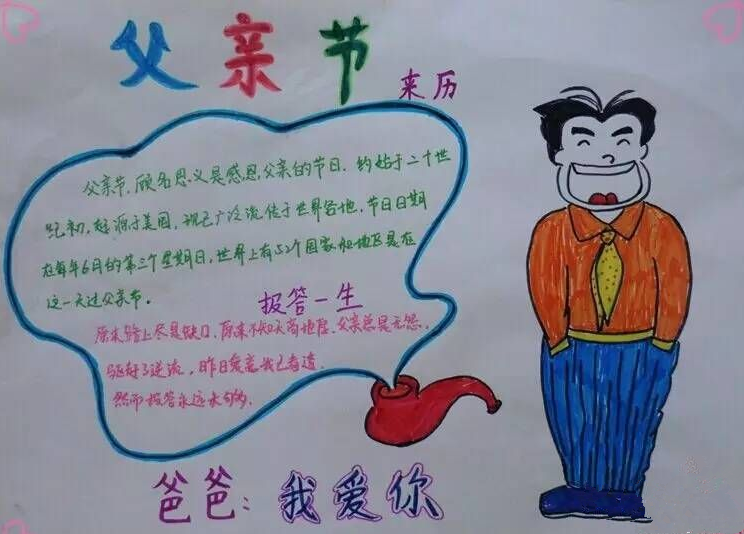 父亲节
来历
父亲节,顾名思义是感恩父亲的节日.约始于二十世
纪初,起源于美国,现已广泛流传于世界各地,节日日期
在每年6月的第三个星期日,世界上有52个国家和地区是在
这一天过父亲节。
报答一生
原来路上尽是缺口,原来不知天高地厚.父亲总是无怨,
昨日
然而报答永远未句够.
爸爸:我爱你